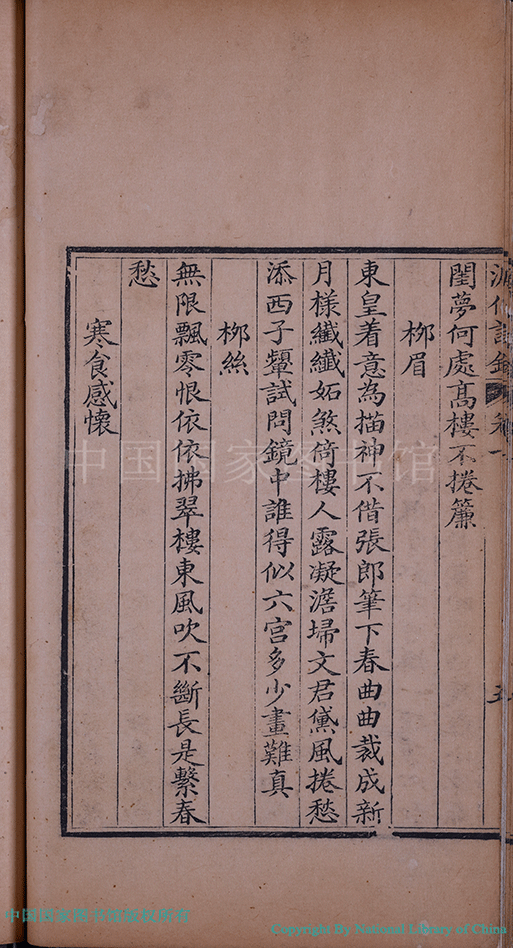 閨夢何處高樓不捲簾
栁眉
東皇着意為描神不借張郎筆下春曲曲裁成新
月様纖纖妬煞倚樓人露凝澹埽文君黛風捲愁
添西子顰試問鏡中誰得似六宫多少畫難真
栁絲
無限飄零恨依依拂翠樓東風吹不斷長是繫春
愁
寒食感懷
中国国家图书馆
中国国家图书馆版权所有
Copyright By National Library of China